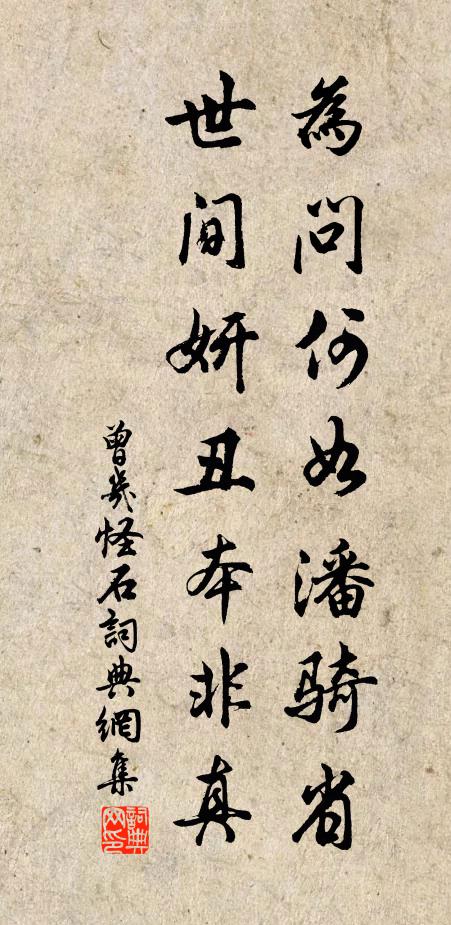 為問何如潘騎省
世间妍丑本非真
曾幾怪石詞典網集
詞典網印